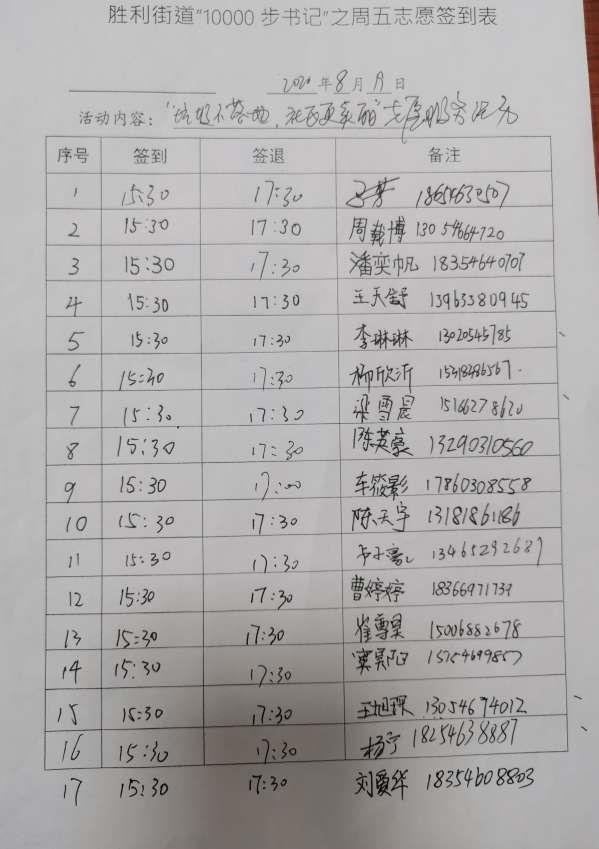 胜利街道“10000 步书记”之周五志愿签到表
2020 年 8 月 日
活动内容：“垃圾不落地，社区更美丽”志愿服务活动
序号 签到 签退 备注
1 15:30 17:30 18654632507
2 15:30 17:30 周载博 13054664720
3 15:30 17:30 潘奕帆 18354640707
4 15:30 17:30 王天舒 13963380945
5 15:30 17:30 李琳琳 13020545785
6 15:30 17:30 柳欣沂
7 15:30 17:30 梁雪晨 15166278620
8 15:30 17:30 陈英豪 13290310560
9 15:30 17:00 车筱影 17860308558
10 15:30 17:30 陈天宇 13181861186
11 15:30 17:30 13465292687
12 15:30 17:30 曹婷婷 18366971739
13 15:30 17:30 崔雪昊 15006882678
14 15:30 17:30 窦昊阳 15754699857
15 15:30 17:30 王旭琛 13054674012
16 15:30 17:30 杨宁 18254638887
17 15:30 17:30 刘爱华 18354608803